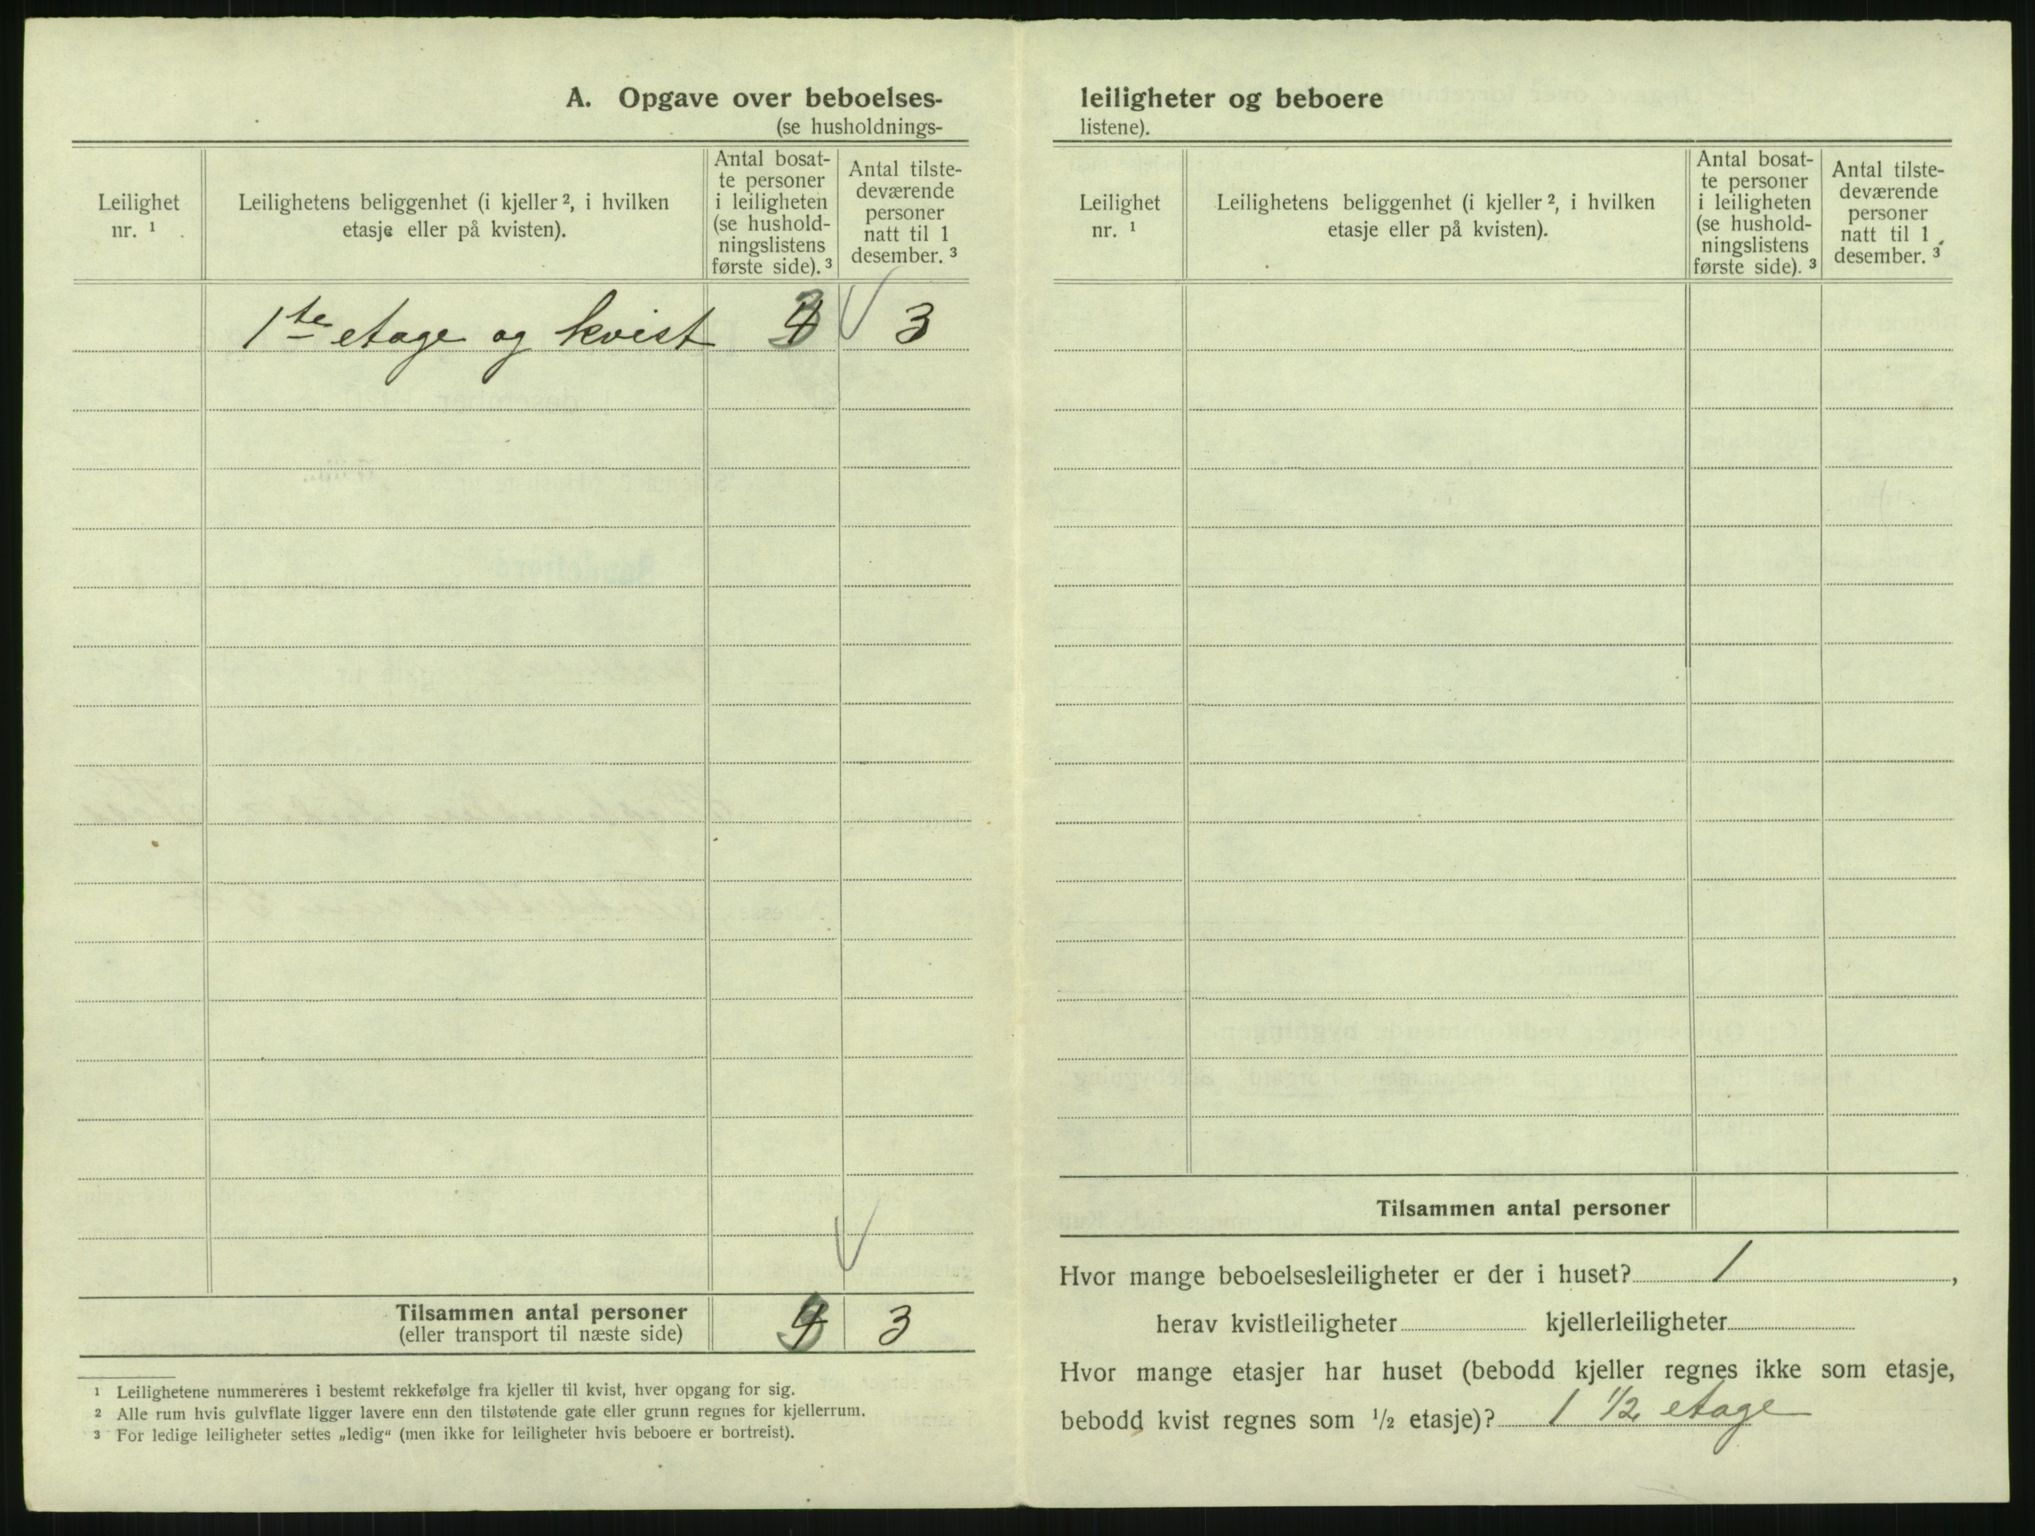 A. Opgave over beboelses-
(se husholdnings-
Leilighet
nr. 1
Leilighetens beliggenhet (i kjeller 2, i hvilken
etasje eller på kvisten).
Antal bosat-
te personer
i leiligheten
(se hushold-
ningslistens
første side). 3
Antal tilste-
deværende
personer
natt til 1
desember. 3
1te etage og kvist 3
Tilsammen antal personer
(eller transport til næste side) 3
1 Leilighetene nummereres i bestemt rekkefølge fra kjeller til kvist, hver opgang for sig.
2 Alle rum hvis gulvflate ligger lavere enn den tilstøtende gate eller grunn regnes for kjellerrum.
3 For ledige leiligheter settes „ledig“ (men ikke for leiligheter hvis beboere er bortreist).
leiligheter og beboere
listene).
Leilighet
nr. 1
Leilighetens beliggenhet (i kjeller 2, i hvilken
etasje eller på kvisten).
Antal bosat-
te personer
i leiligheten
(se hushold-
ningslistens
første side). 3
Antal tilste-
deværende
personer
natt til 1
desember. 3
Tilsammen antal personer
Hvor mange beboelsesleiligheter er der i huset? 1,
herav kvistleiligheter kjellerleiligheter
Hvor mange etasjer har huset (bebodd kjeller regnes ikke som etasje,
bebodd kvist regnes som 1/2 etasje)? 1 1/2 etage